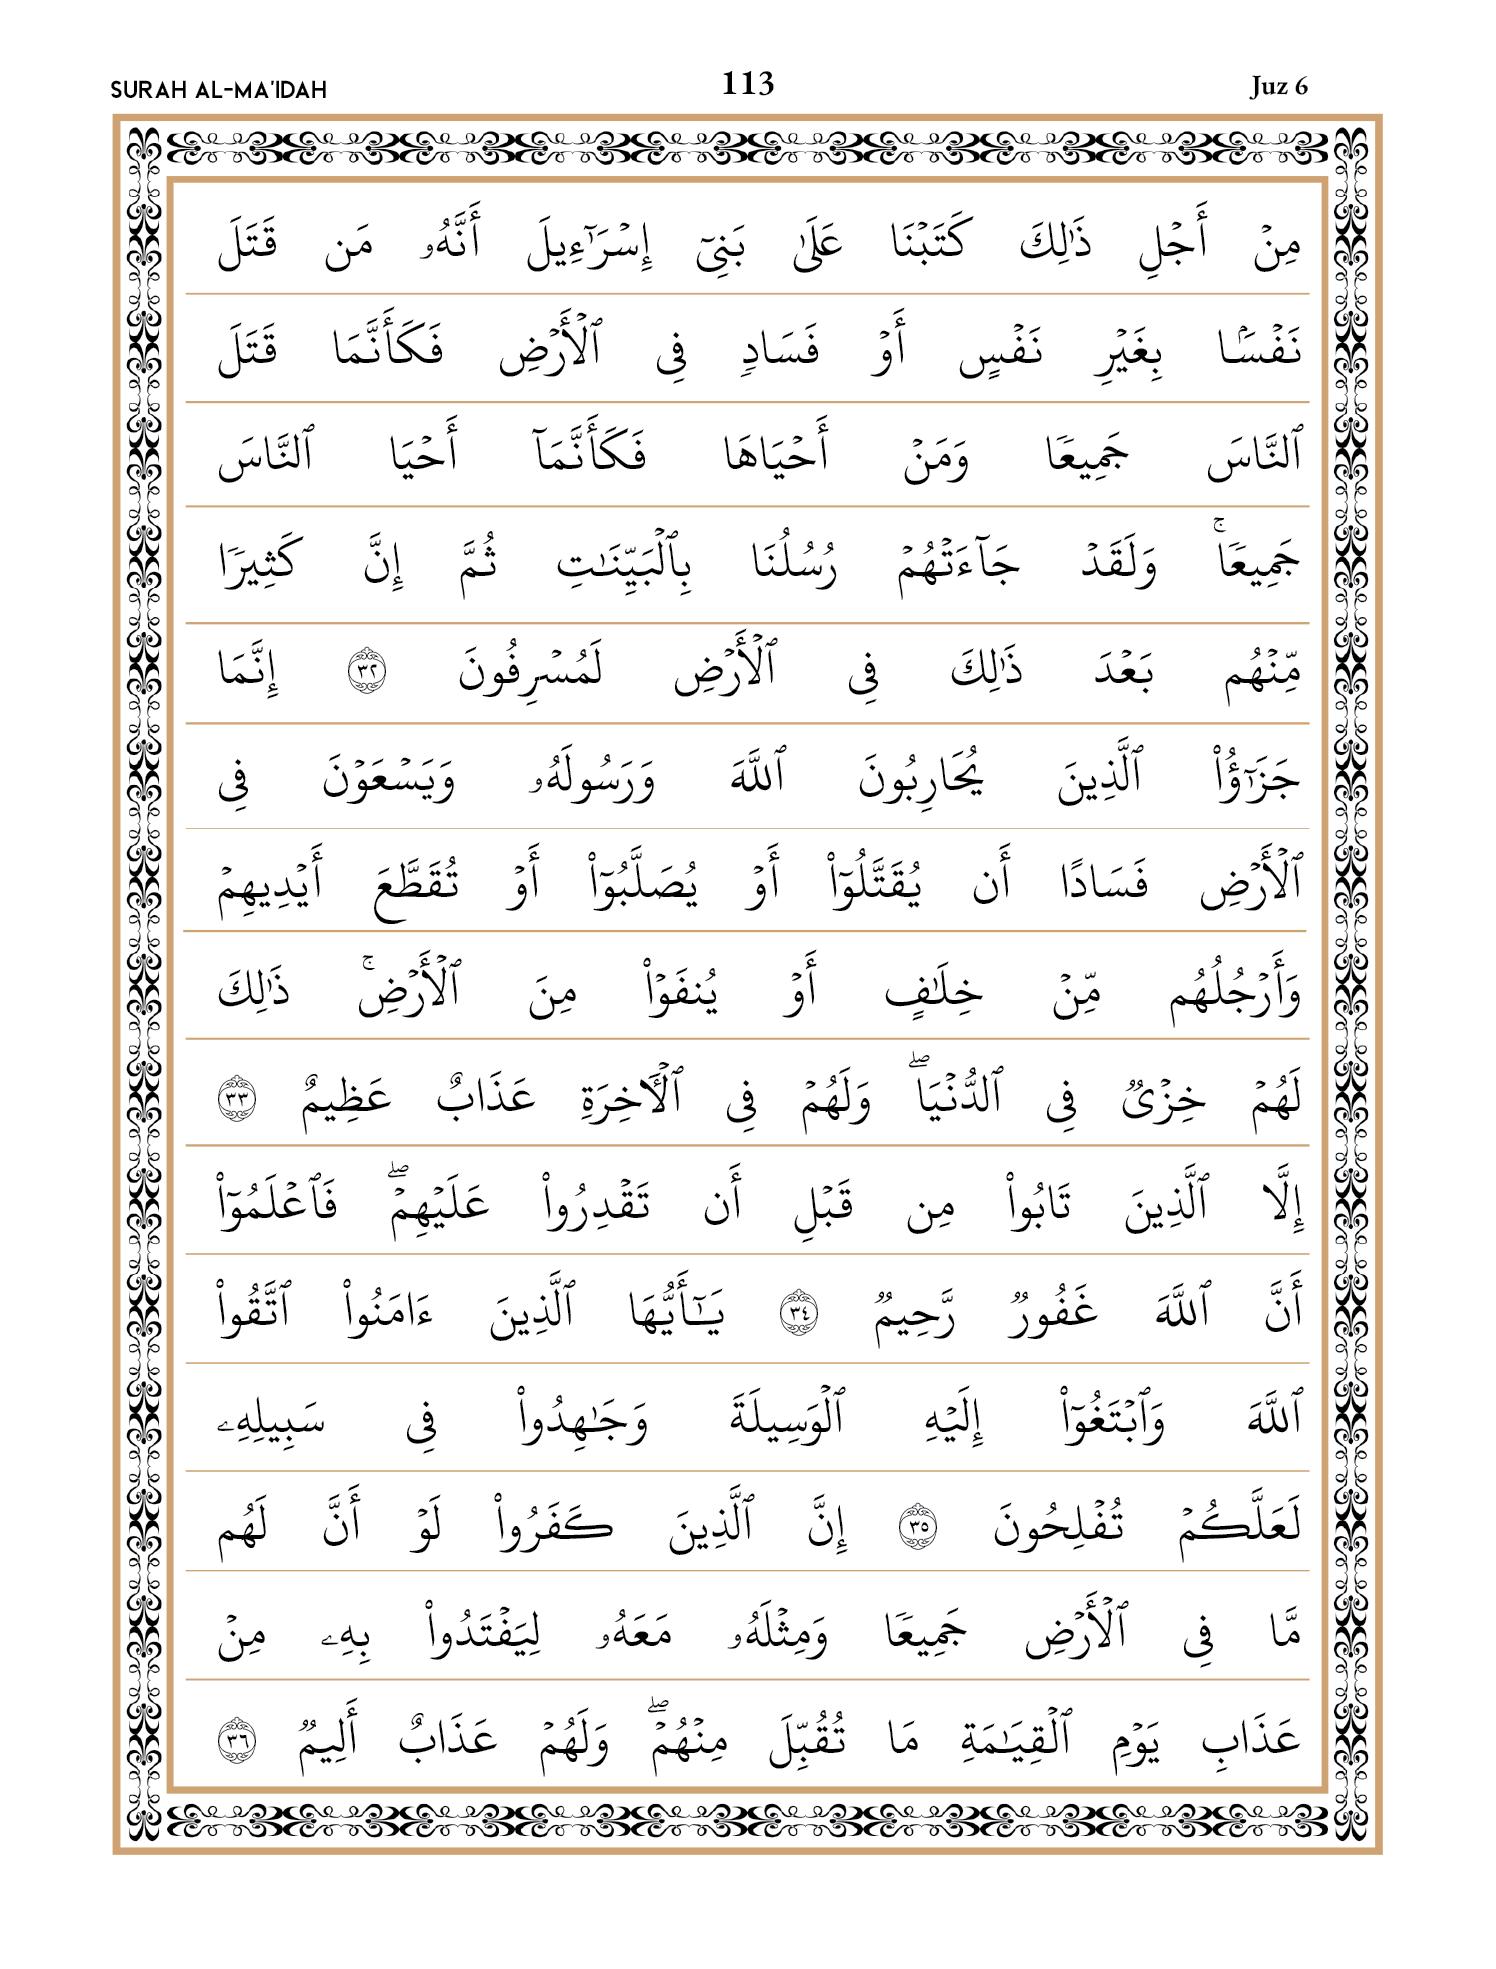 SURAH AL-MA'IDAH 113 Juz 6
مِنۡ أَجۡلِ ذَٰلِكَ كَتَبۡنَا عَلَىٰ بَنِيٓ إِسۡرَٰٓءِيلَ أَنَّهُۥ مَن قَتَلَ
نَفۡسَۢا بِغَيۡرِ نَفۡسٍ أَوۡ فَسَادٖ فِي ٱلۡأَرۡضِ فَكَأَنَّمَا قَتَلَ
ٱلنَّاسَ جَمِيعٗا وَمَنۡ أَحۡيَاهَا فَكَأَنَّمَآ أَحۡيَا ٱلنَّاسَ
جَمِيعٗاۚ وَلَقَدۡ جَآءَتۡهُمۡ رُسُلُنَا بِٱلۡبَيِّنَٰتِ ثُمَّ إِنَّ كَثِيرٗا
مِّنۡهُم بَعۡدَ ذَٰلِكَ فِي ٱلۡأَرۡضِ لَمُسۡرِفُونَ ٣٢ إِنَّمَا
جَزَٰٓؤُاْ ٱلَّذِينَ يُحَارِبُونَ ٱللَّهَ وَرَسُولَهُۥ وَيَسۡعَوۡنَ فِي
ٱلۡأَرۡضِ فَسَادًا أَن يُقَتَّلُوٓاْ أَوۡ يُصَلَّبُوٓاْ أَوۡ تُقَطَّعَ أَيۡدِيهِمۡ
وَأَرۡجُلُهُم مِّنۡ خِلَٰفٍ أَوۡ يُنفَوۡاْ مِنَ ٱلۡأَرۡضِۚ ذَٰلِكَ
لَهُمۡ خِزۡيٞ فِي ٱلدُّنۡيَاۖ وَلَهُمۡ فِي ٱلۡأٓخِرَةِ عَذَابٌ عَظِيمٌ ٣٣
إِلَّا ٱلَّذِينَ تَابُواْ مِن قَبۡلِ أَن تَقۡدِرُواْ عَلَيۡهِمۡۖ فَٱعۡلَمُوٓاْ
أَنَّ ٱللَّهَ غَفُورٞ رَّحِيمٞ ٣٤ يَٰٓأَيُّهَا ٱلَّذِينَ ءَامَنُواْ ٱتَّقُواْ
ٱللَّهَ وَٱبۡتَغُوٓاْ إِلَيۡهِ ٱلۡوَسِيلَةَ وَجَٰهِدُواْ فِي سَبِيلِهِۦ
لَعَلَّكُمۡ تُفۡلِحُونَ ٣٥ إِنَّ ٱلَّذِينَ كَفَرُواْ لَوۡ أَنَّ لَهُم
مَّا فِي ٱلۡأَرۡضِ جَمِيعٗا وَمِثۡلَهُۥ مَعَهُۥ لِيَفۡتَدُواْ بِهِۦ مِنۡ
عَذَابِ يَوۡمِ ٱلۡقِيَٰمَةِ مَا تُقُبِّلَ مِنۡهُمۡۖ وَلَهُمۡ عَذَابٌ أَلِيمٞ ٣٦